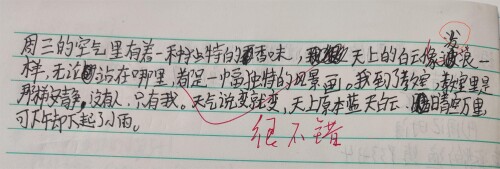 周三的空气里有着一种独特的香味，天上的白云像波浪一
样，无论站在哪里，都是一幅独特的风景画。我到了教室，教室里是
那样安静，没有人，只有我。天气说变就变，天上原本蓝天白云、晴空万里，
可下午却下起了小雨。
很不错